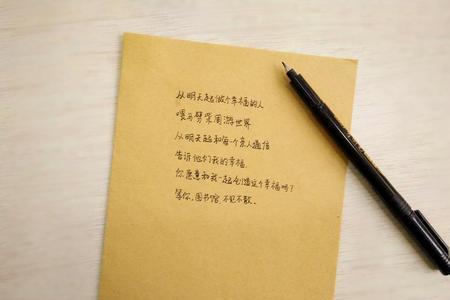 从明天起做个幸福的人
喂马劈柴周游世界
从明天起和每个亲人通信
告诉他们我的幸福.
你愿意和我一起创造这个幸福吗?
等你,图书馆,不见不散.